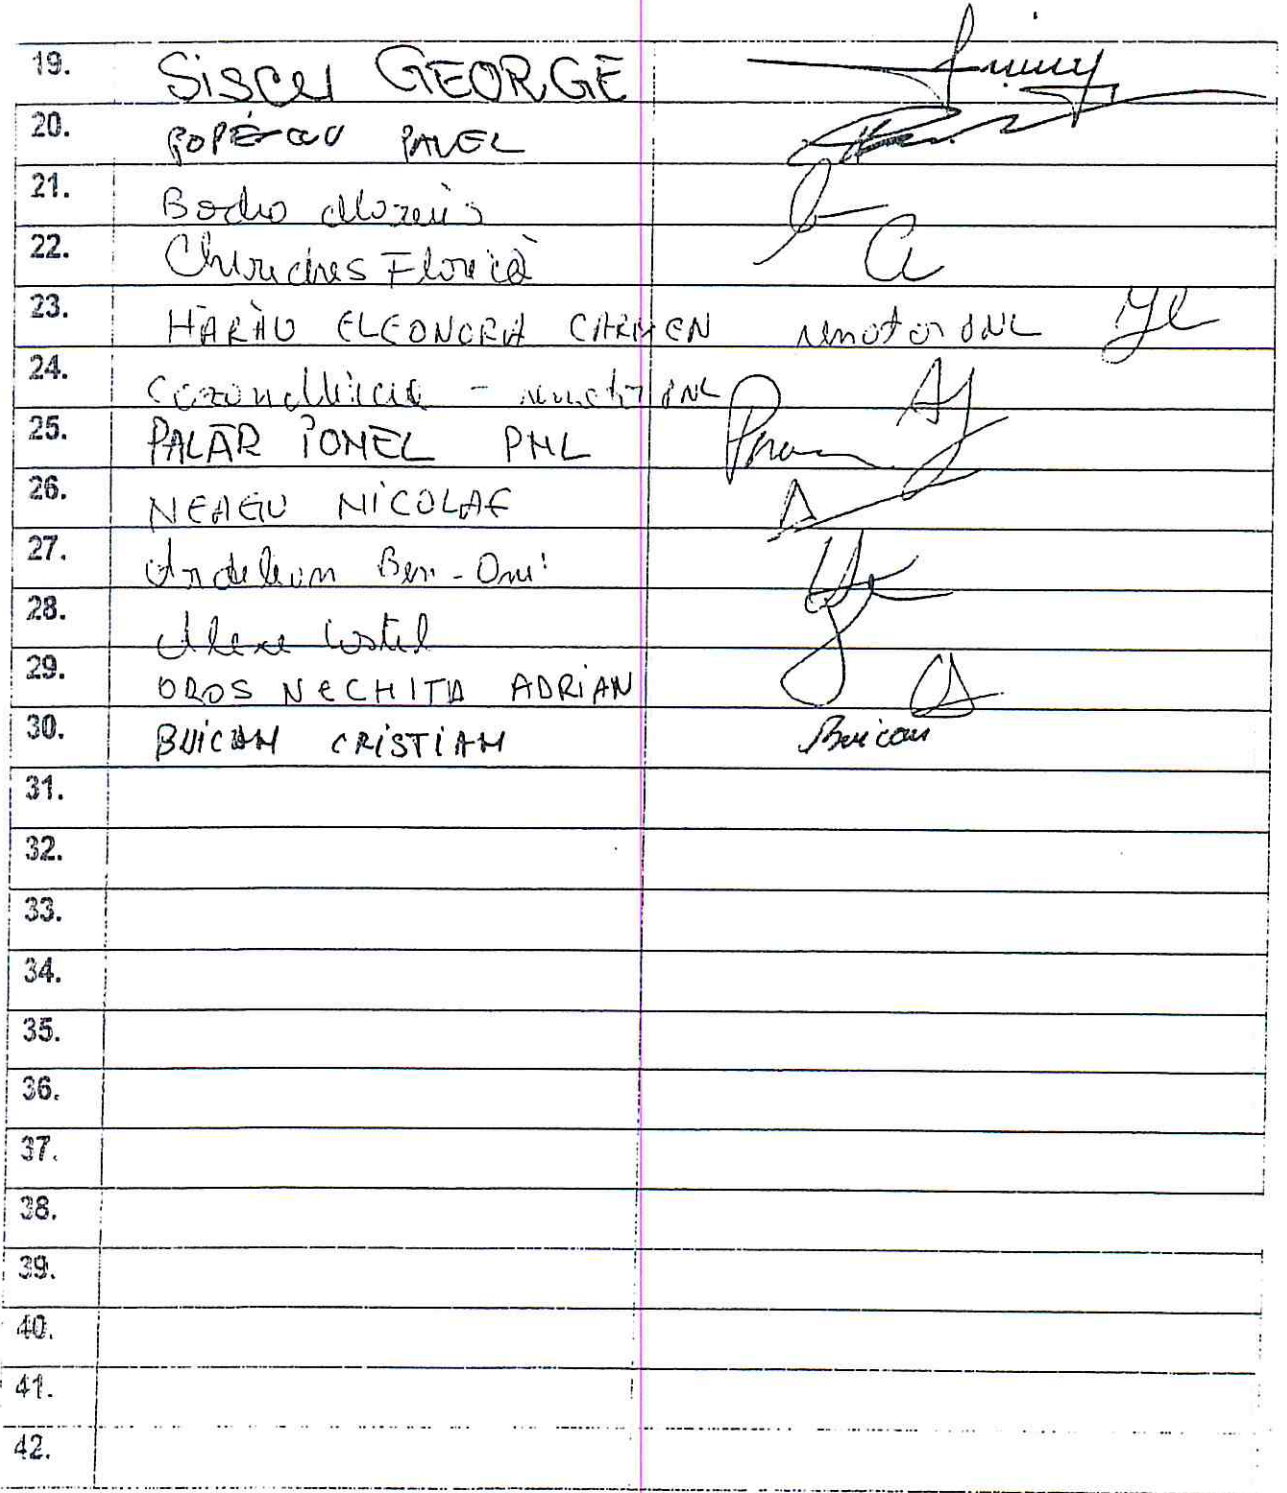 19. Sisca GEORGE
20. POPESCU PAVEL
21. Bodea Marius
22. Chirteș Florică
23. HĂRĂU ELEONORA CARMEN senator PNL
24. Cazan Mircea - senator PNL
25. PALĂR IONEL PNL
26. NEAGU NICOLAE
27. Ardelean Ben-Oni
28. Alexe Costel
29. OROS NECHITA ADRIAN
30. BUICAN CRISTIAN Buican
31.
32.
33.
34.
35.
36.
37.
38.
39.
40.
41.
42.